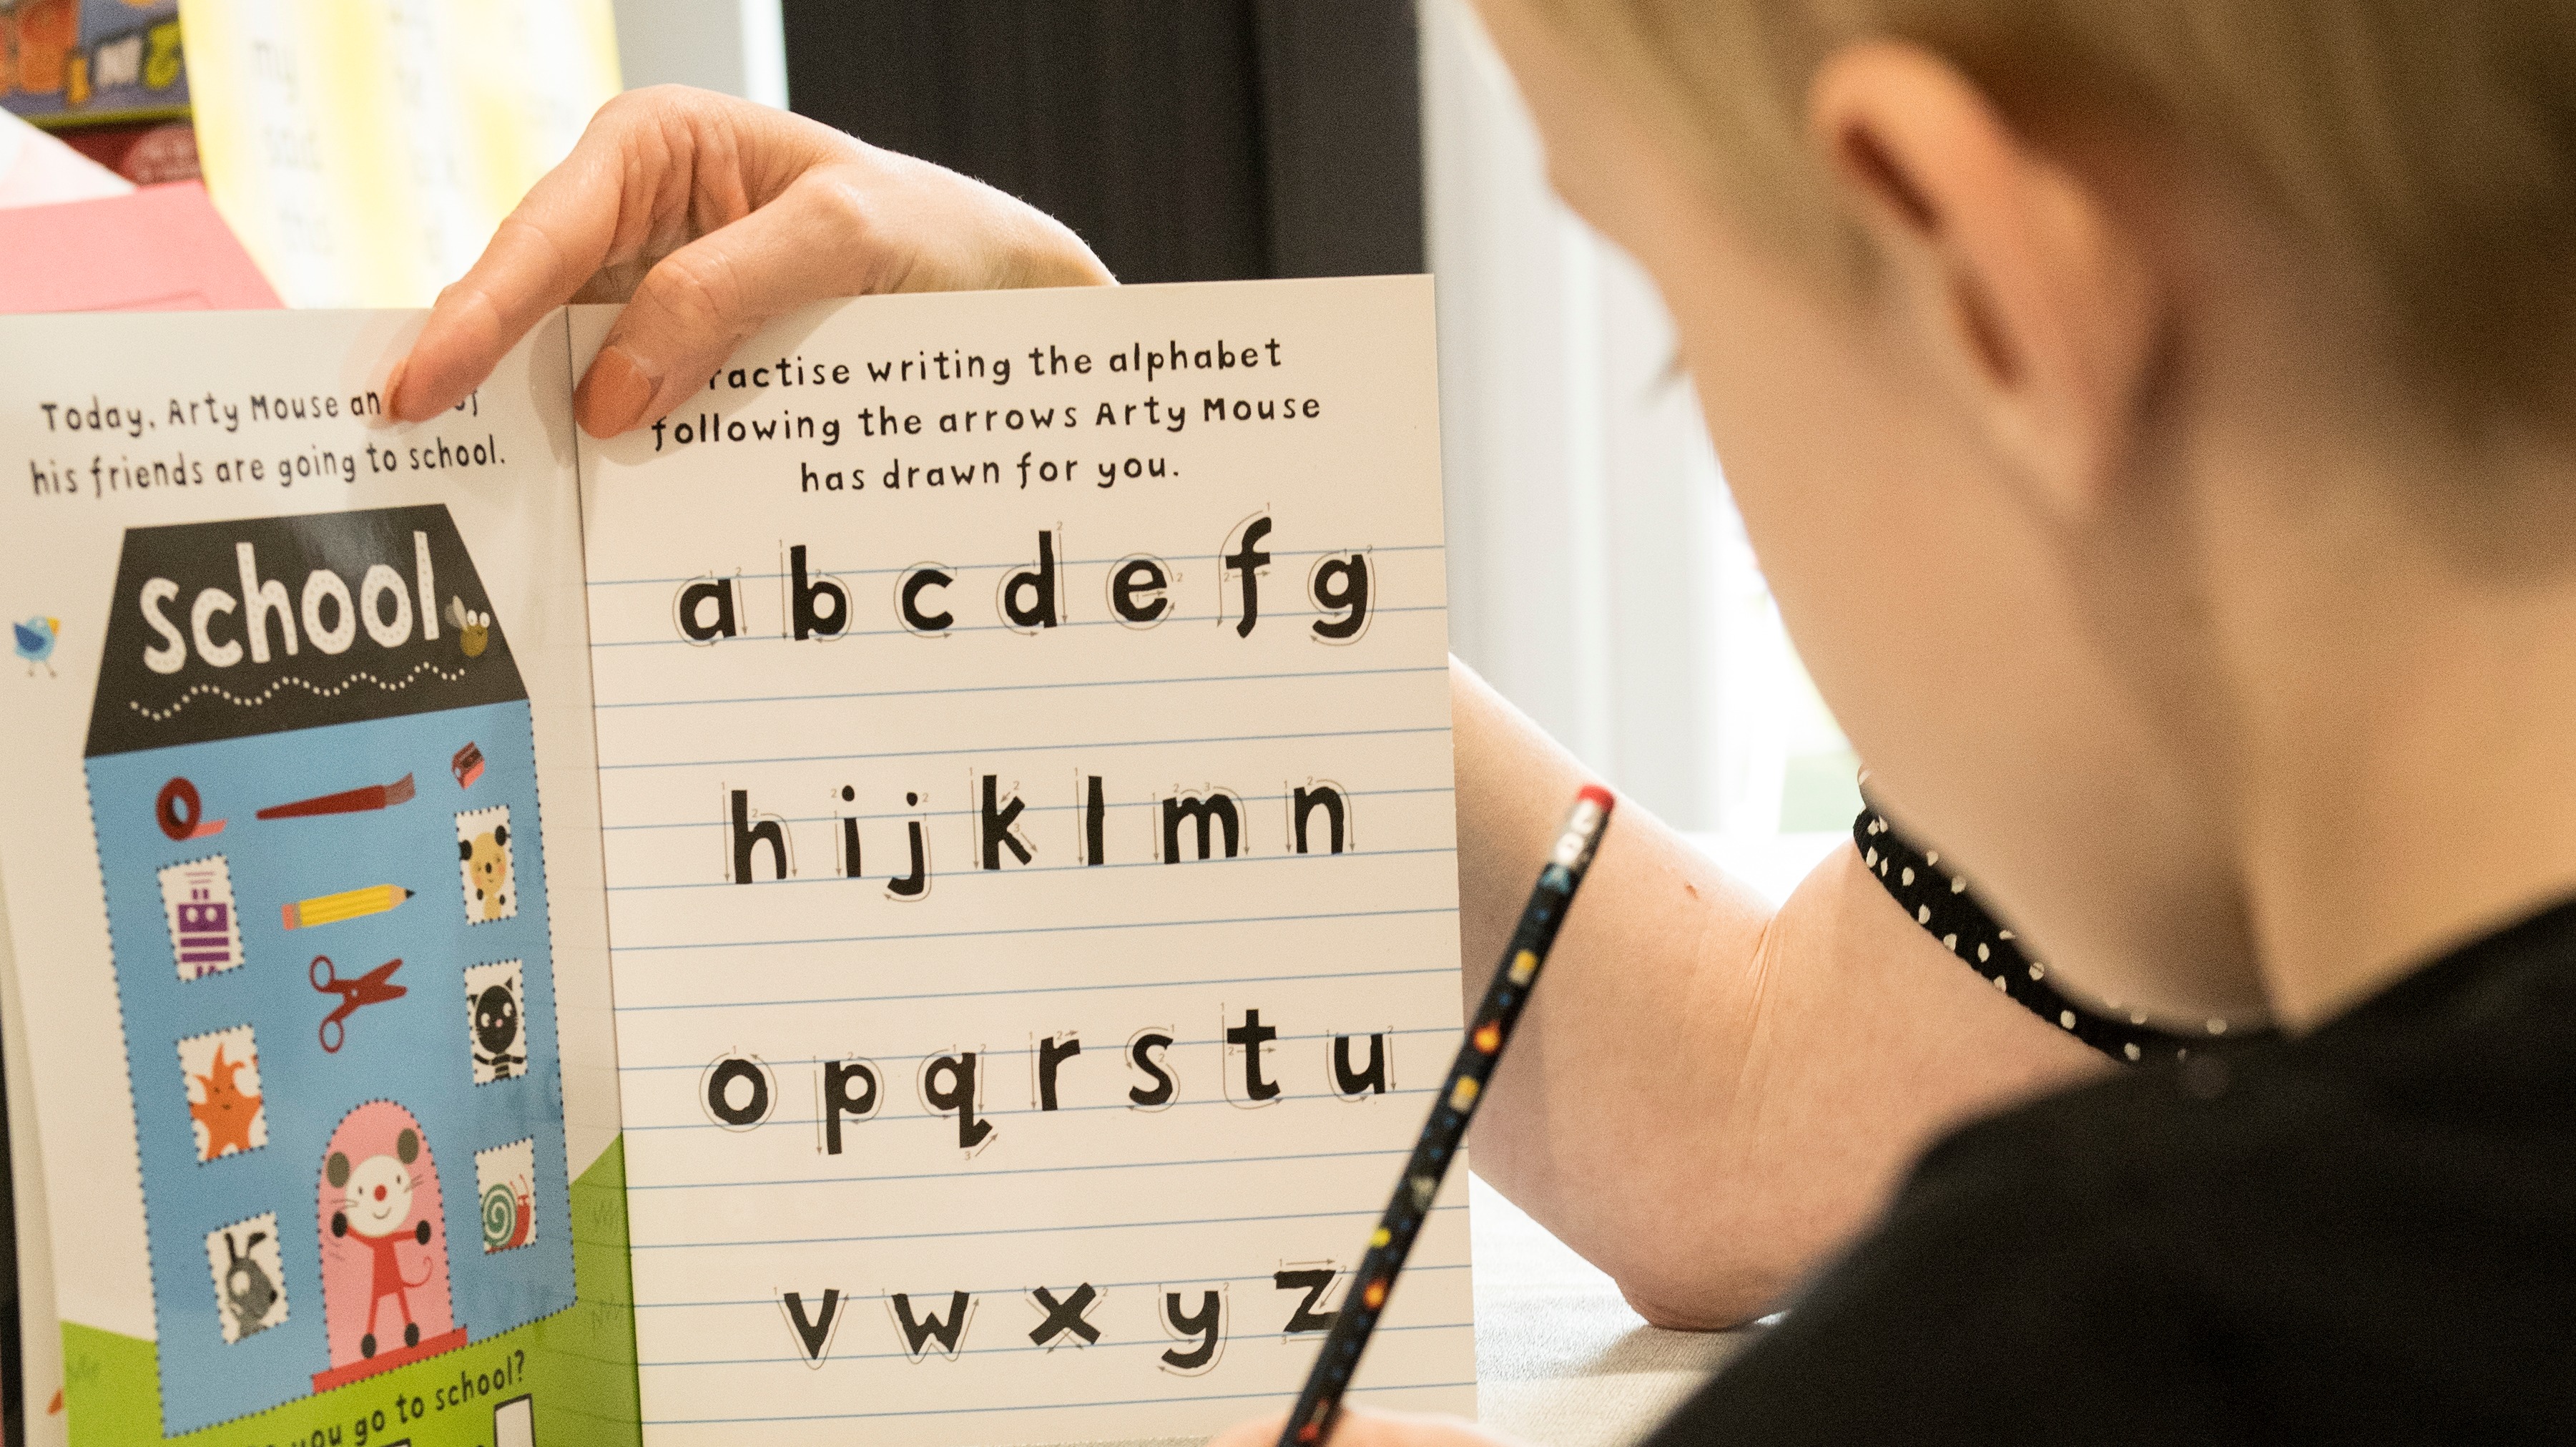 my
said
this
Today, Arty Mouse an of
his friends are going to school.
School
you go to school?
ractise writing the alphabet
following the arrows Arty Mouse
has drawn for you.
a b c d e f g
h i j k l m n
o p q r s t u
v w x y z